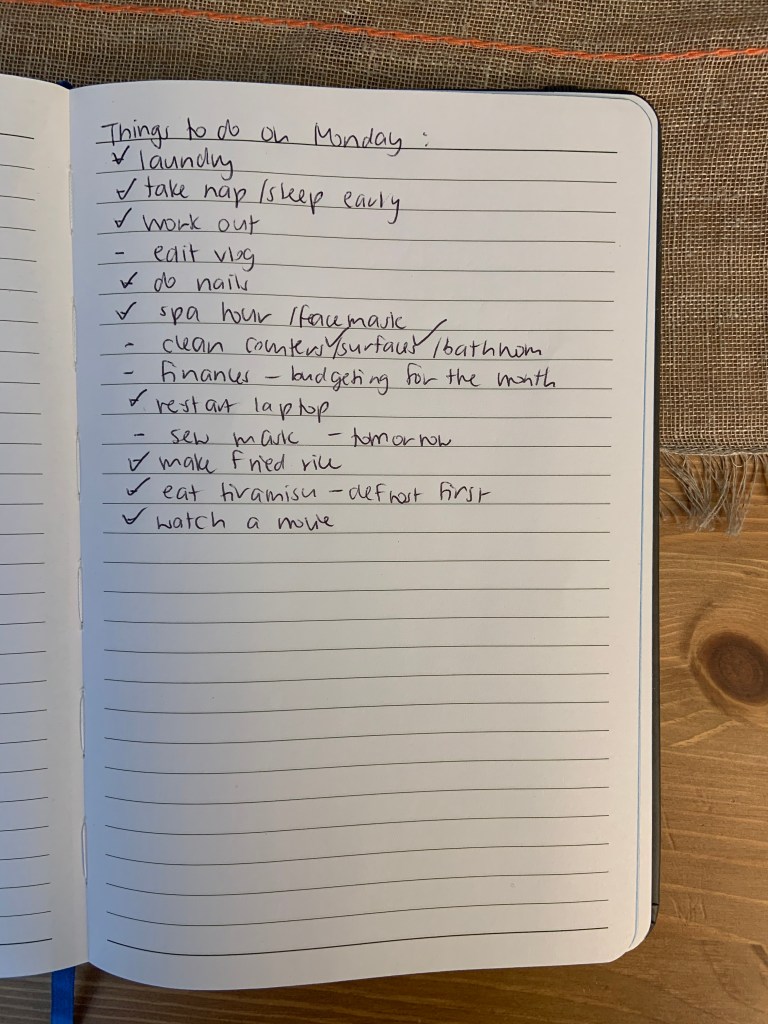 Things to do on Monday :
✓ laundry
✓ take nap /sleep early
✓ work out
- edit vlog
✓ do nails
✓ spa hour /face mask
- clean counters✓/surfaces✓/bathroom
- finances - budgeting for the month
✓ restart laptop
- sew mask - tomorrow
✓ make fried rice
✓ eat tiramisu - defrost first
✓ watch a movie